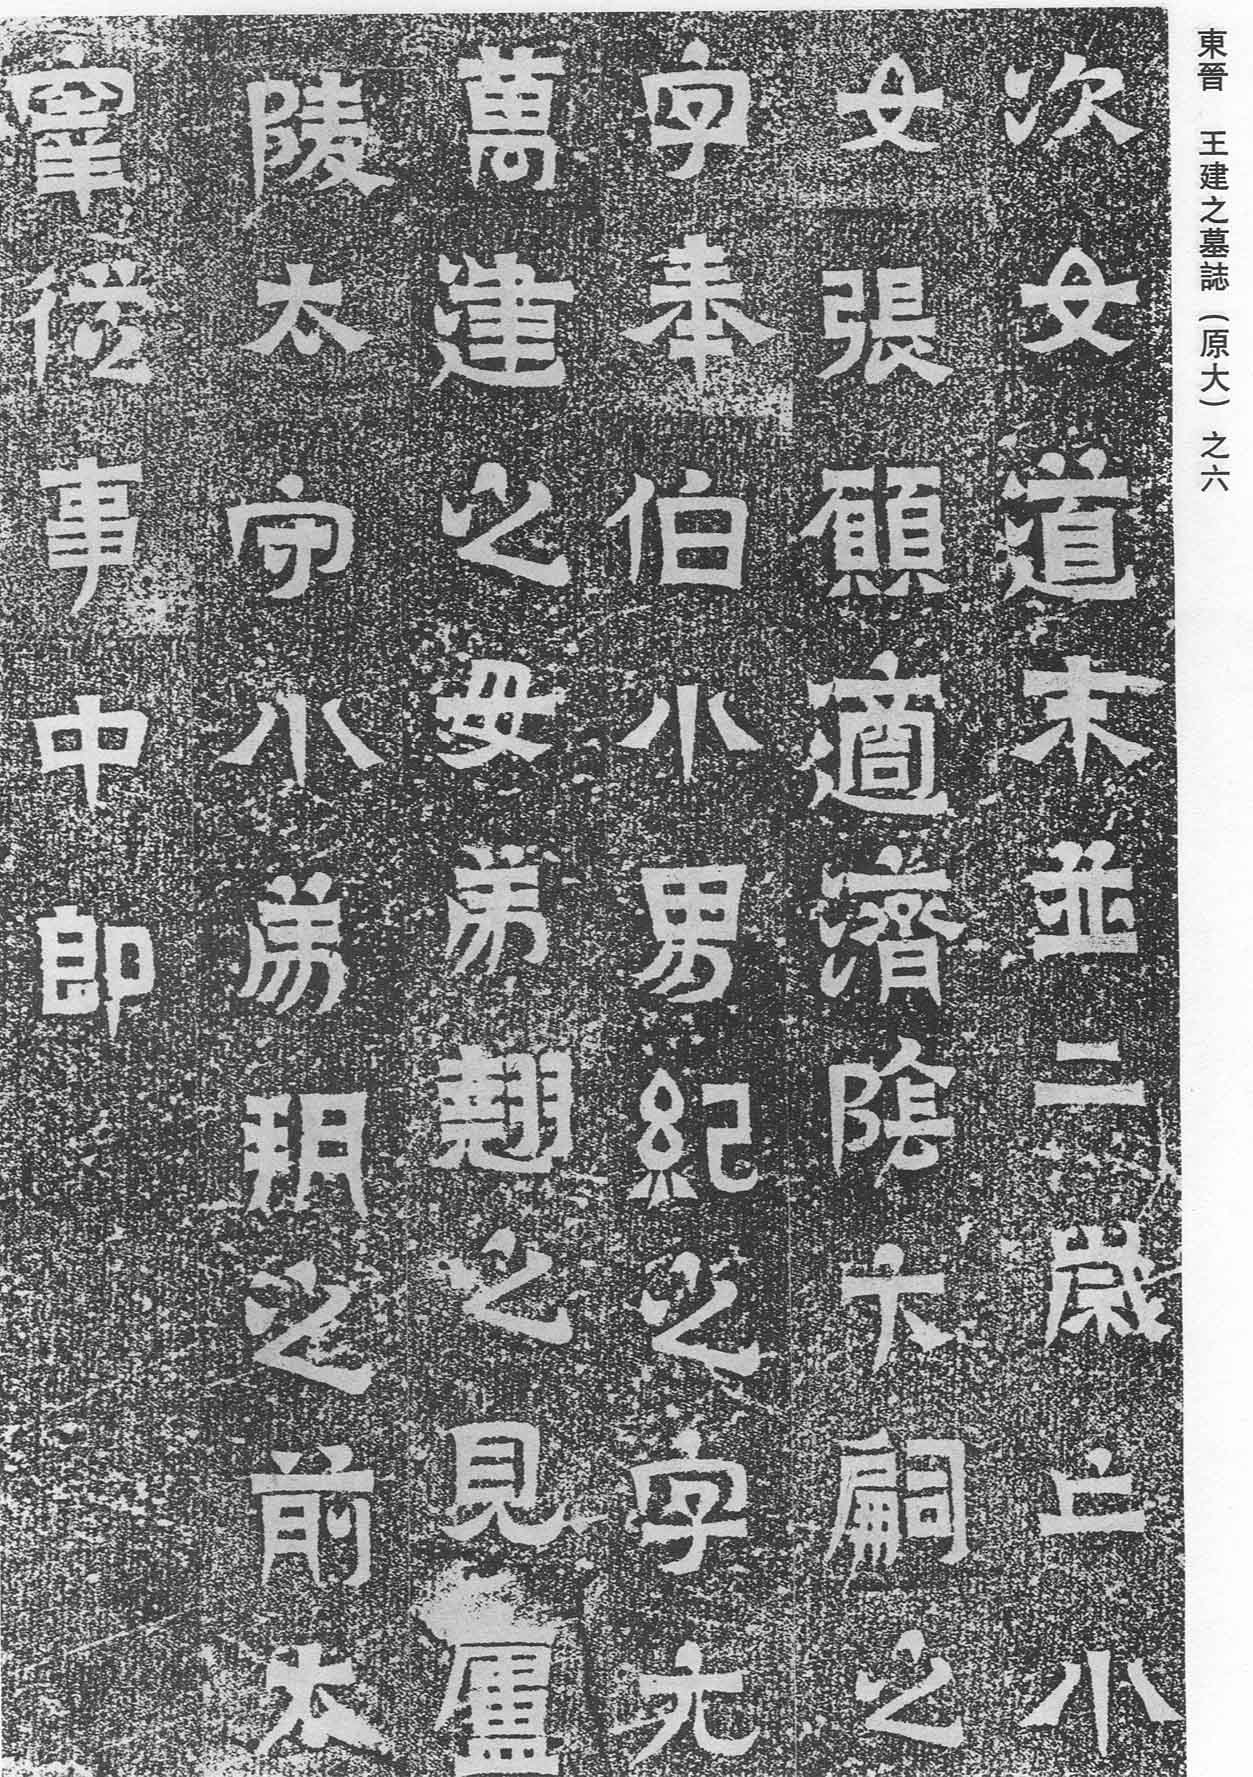 東晉 王建之墓誌(原大)之六
次女道末並二歲亡小
女張願適濟陰卞嗣之
字奉伯小男紀之字元
萬建之母弟翹之見廬
陵太守小弟朔之前太
宰從事中郎